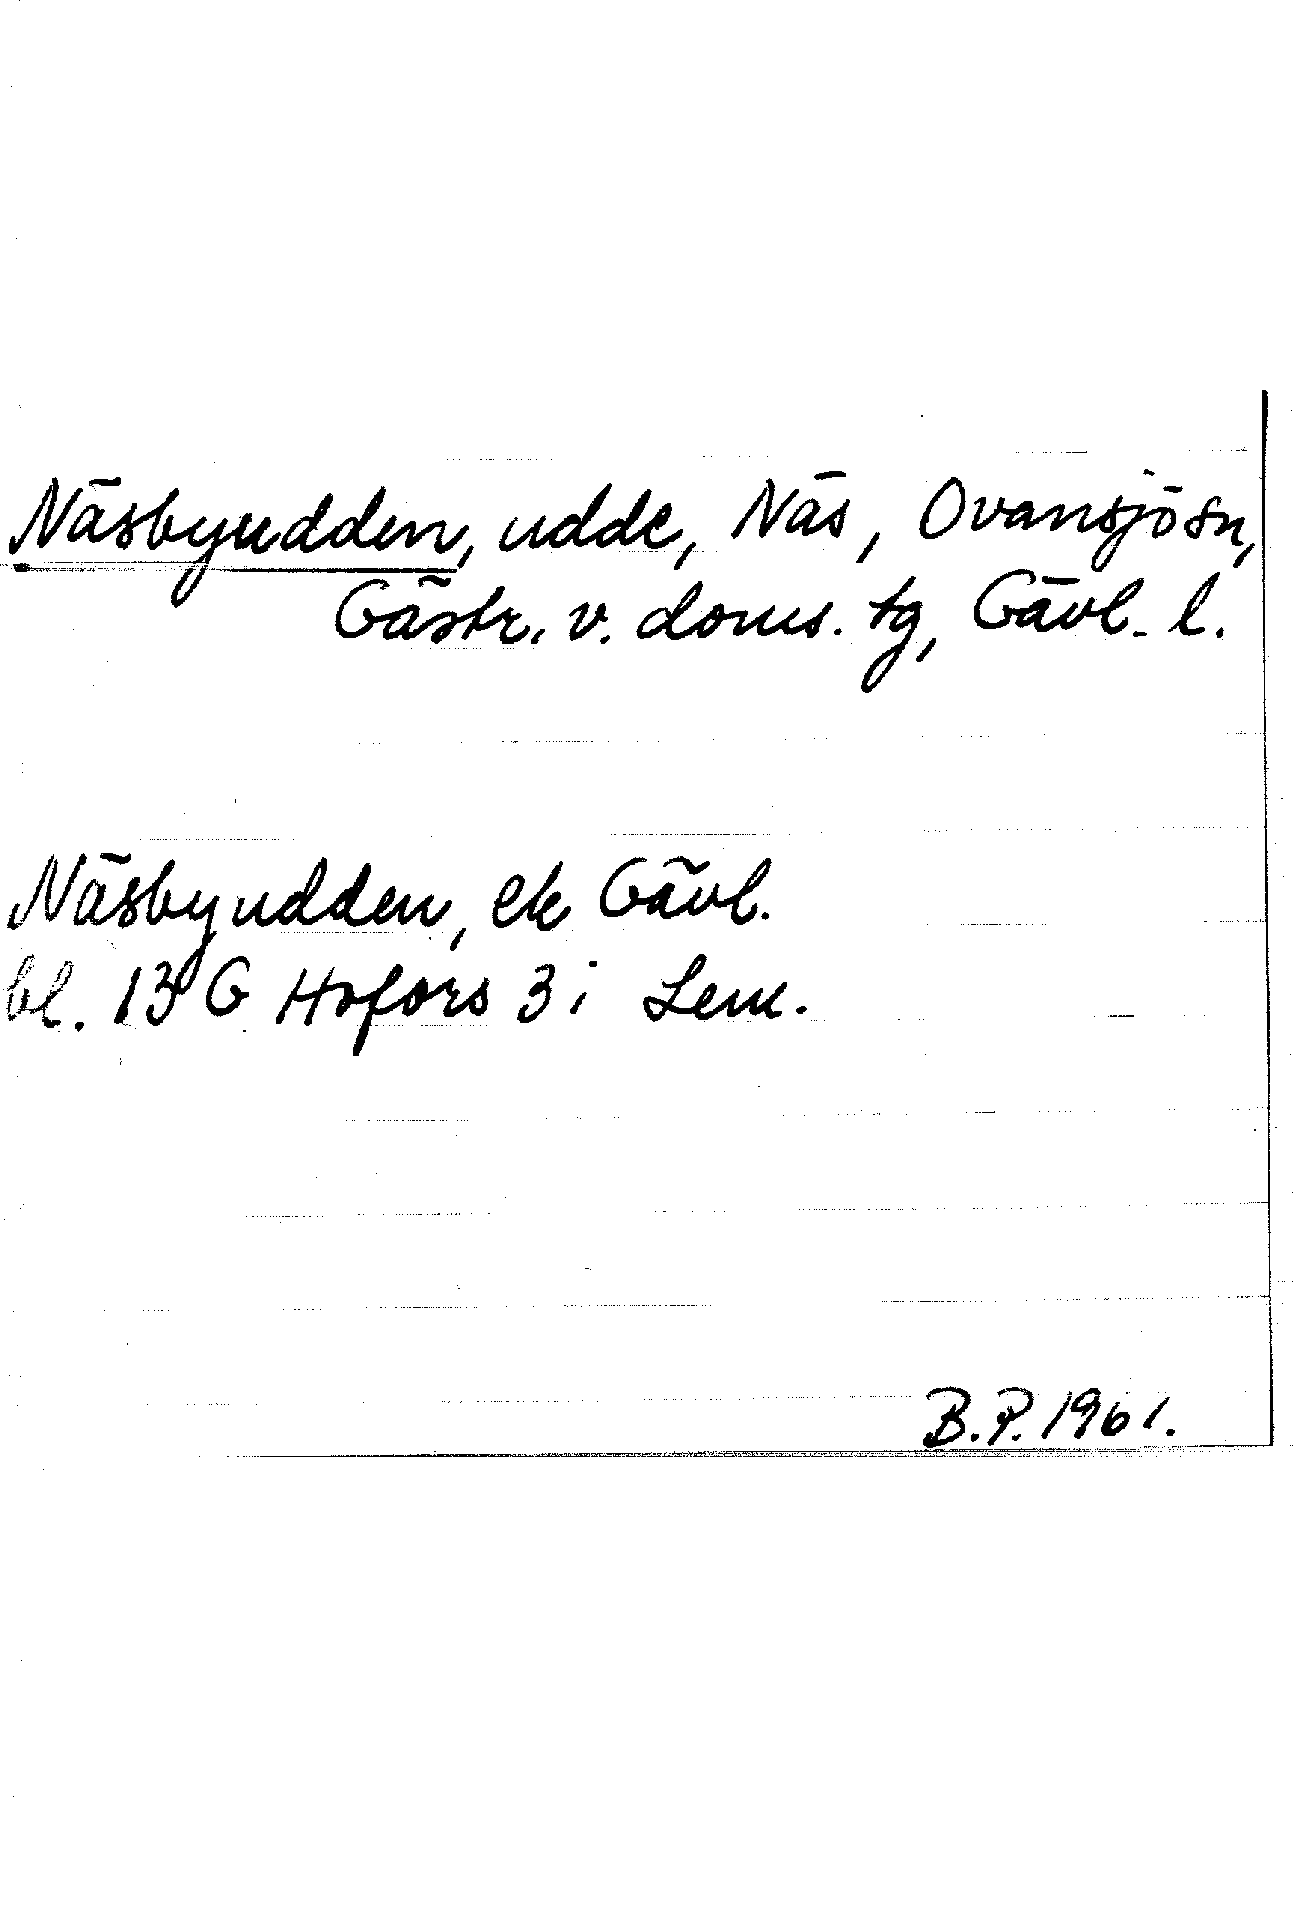 Näsbyudden, udde, Näs, Ovansjösn,
Gästr. v. doms. tg, Gävl. l.
Näsbyudden, ek Gävl.
bl. 13 G Hofors 3 i Lem.
B.P. 1961.